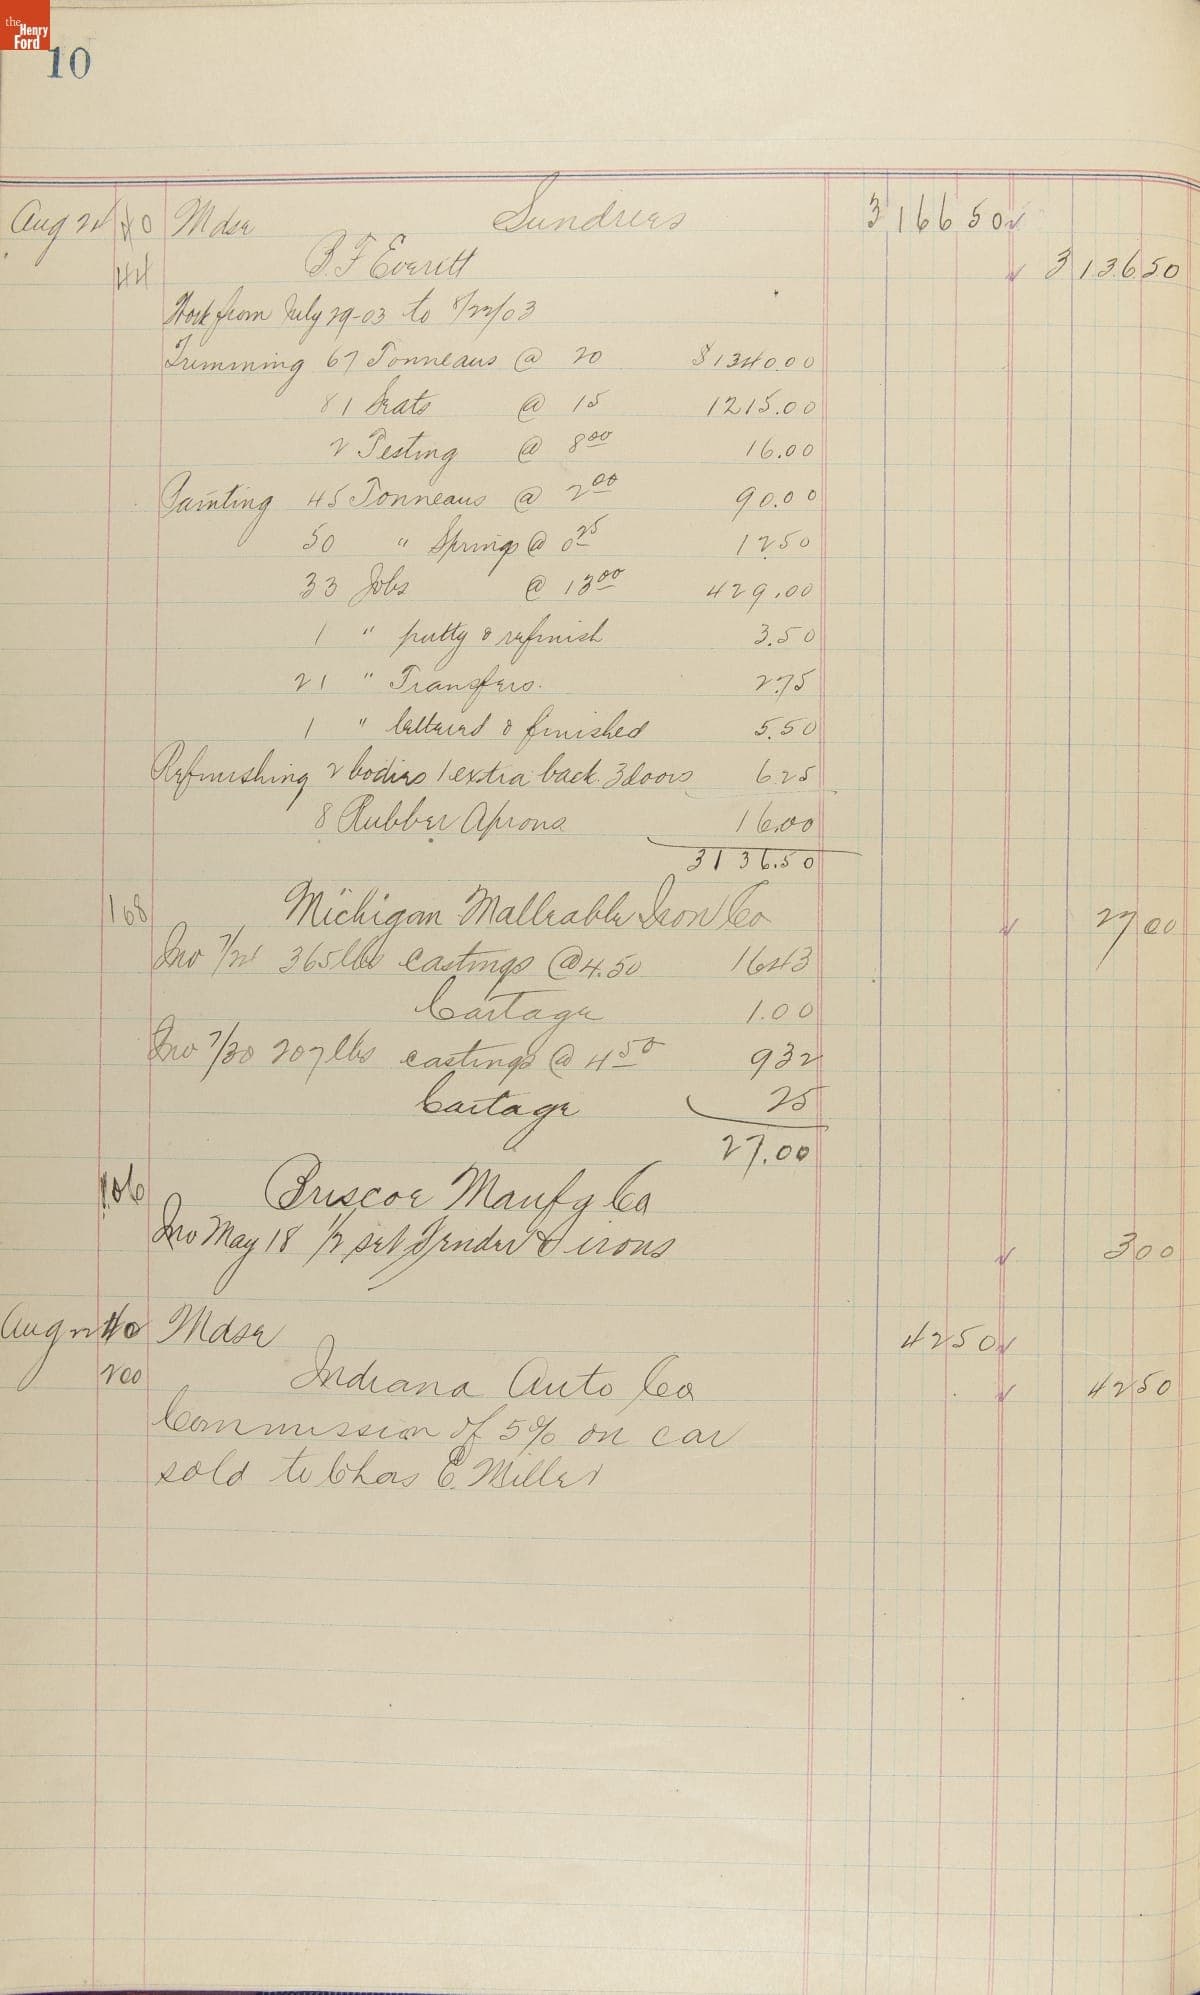 the Henry Ford
10
Aug 24 40 Mdse Sundries 3166 50
44 B. F Everitt 3136 50
Work from July 29-03 to 8/22/03
Trimming 67 Tonneaus @ 20 $1340.00
81 Seats @ 15 1215.00
2 Testing @ 8 00 16.00
Painting 45 Tonneaus @ 2 00 90.00
50 " Springs @ 0 25 12.50
33 Jobs @ 13 00 429.00
1 " putty & refinish 3.50
21 " Transfers. 2.75
1 " lettered & finished 5.50
Refinishing 2 bodies 1 extra back. 3 doors 6 25
8 Rubber Aprons 16.00
3136.50
168 Michigan Malleable Iron Co 27 00
Inv 7/21 365 lbs castings @ 4.50 16 43
Cartage 1.00
Inv 7/30 207 lbs castings @ 4 50 9 32
Cartage 25
27.00
106 Briscoe Manfg Co
Inv May 18 1/2 set Fender & irons 3 00
Aug 22 40 Mdse 42 50
200 Indiana Auto Co 42 50
Commission of 5% on car
sold to Chas E. Miller